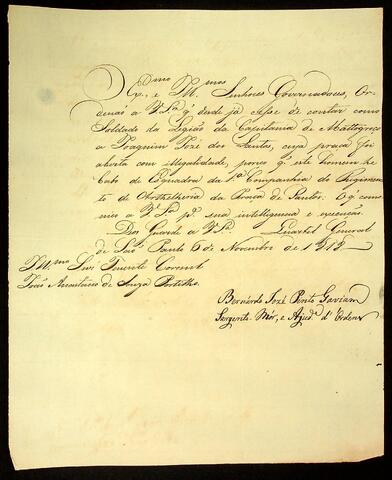 Ex.mos e Il.mos Senhores Governadores, Or-
denão a V.S.a q̃ desde já cesse de contar como
Soldado da Legião da Capitania de Mattogrosso
a Joaquim José dos Santos, cuja praça foi
aberta com illegalidade, porq̃ este homem he
Cabo de Esquadra da 1.a Companhia do Regimen-
to de da Praça de Santos: O q̃ comu-
nico a V.S.a p.a sua intelligencia e execução.
Deos Guarde a V.S.a Quartel General
de São Paulo 6 de Novembro de 1812
Il.mo Snr. Tenente Coronel
João de Souza Botelho.
Bernardo José Pinto Gavião
Sargento Mór, e Ajud.e d'Ordens